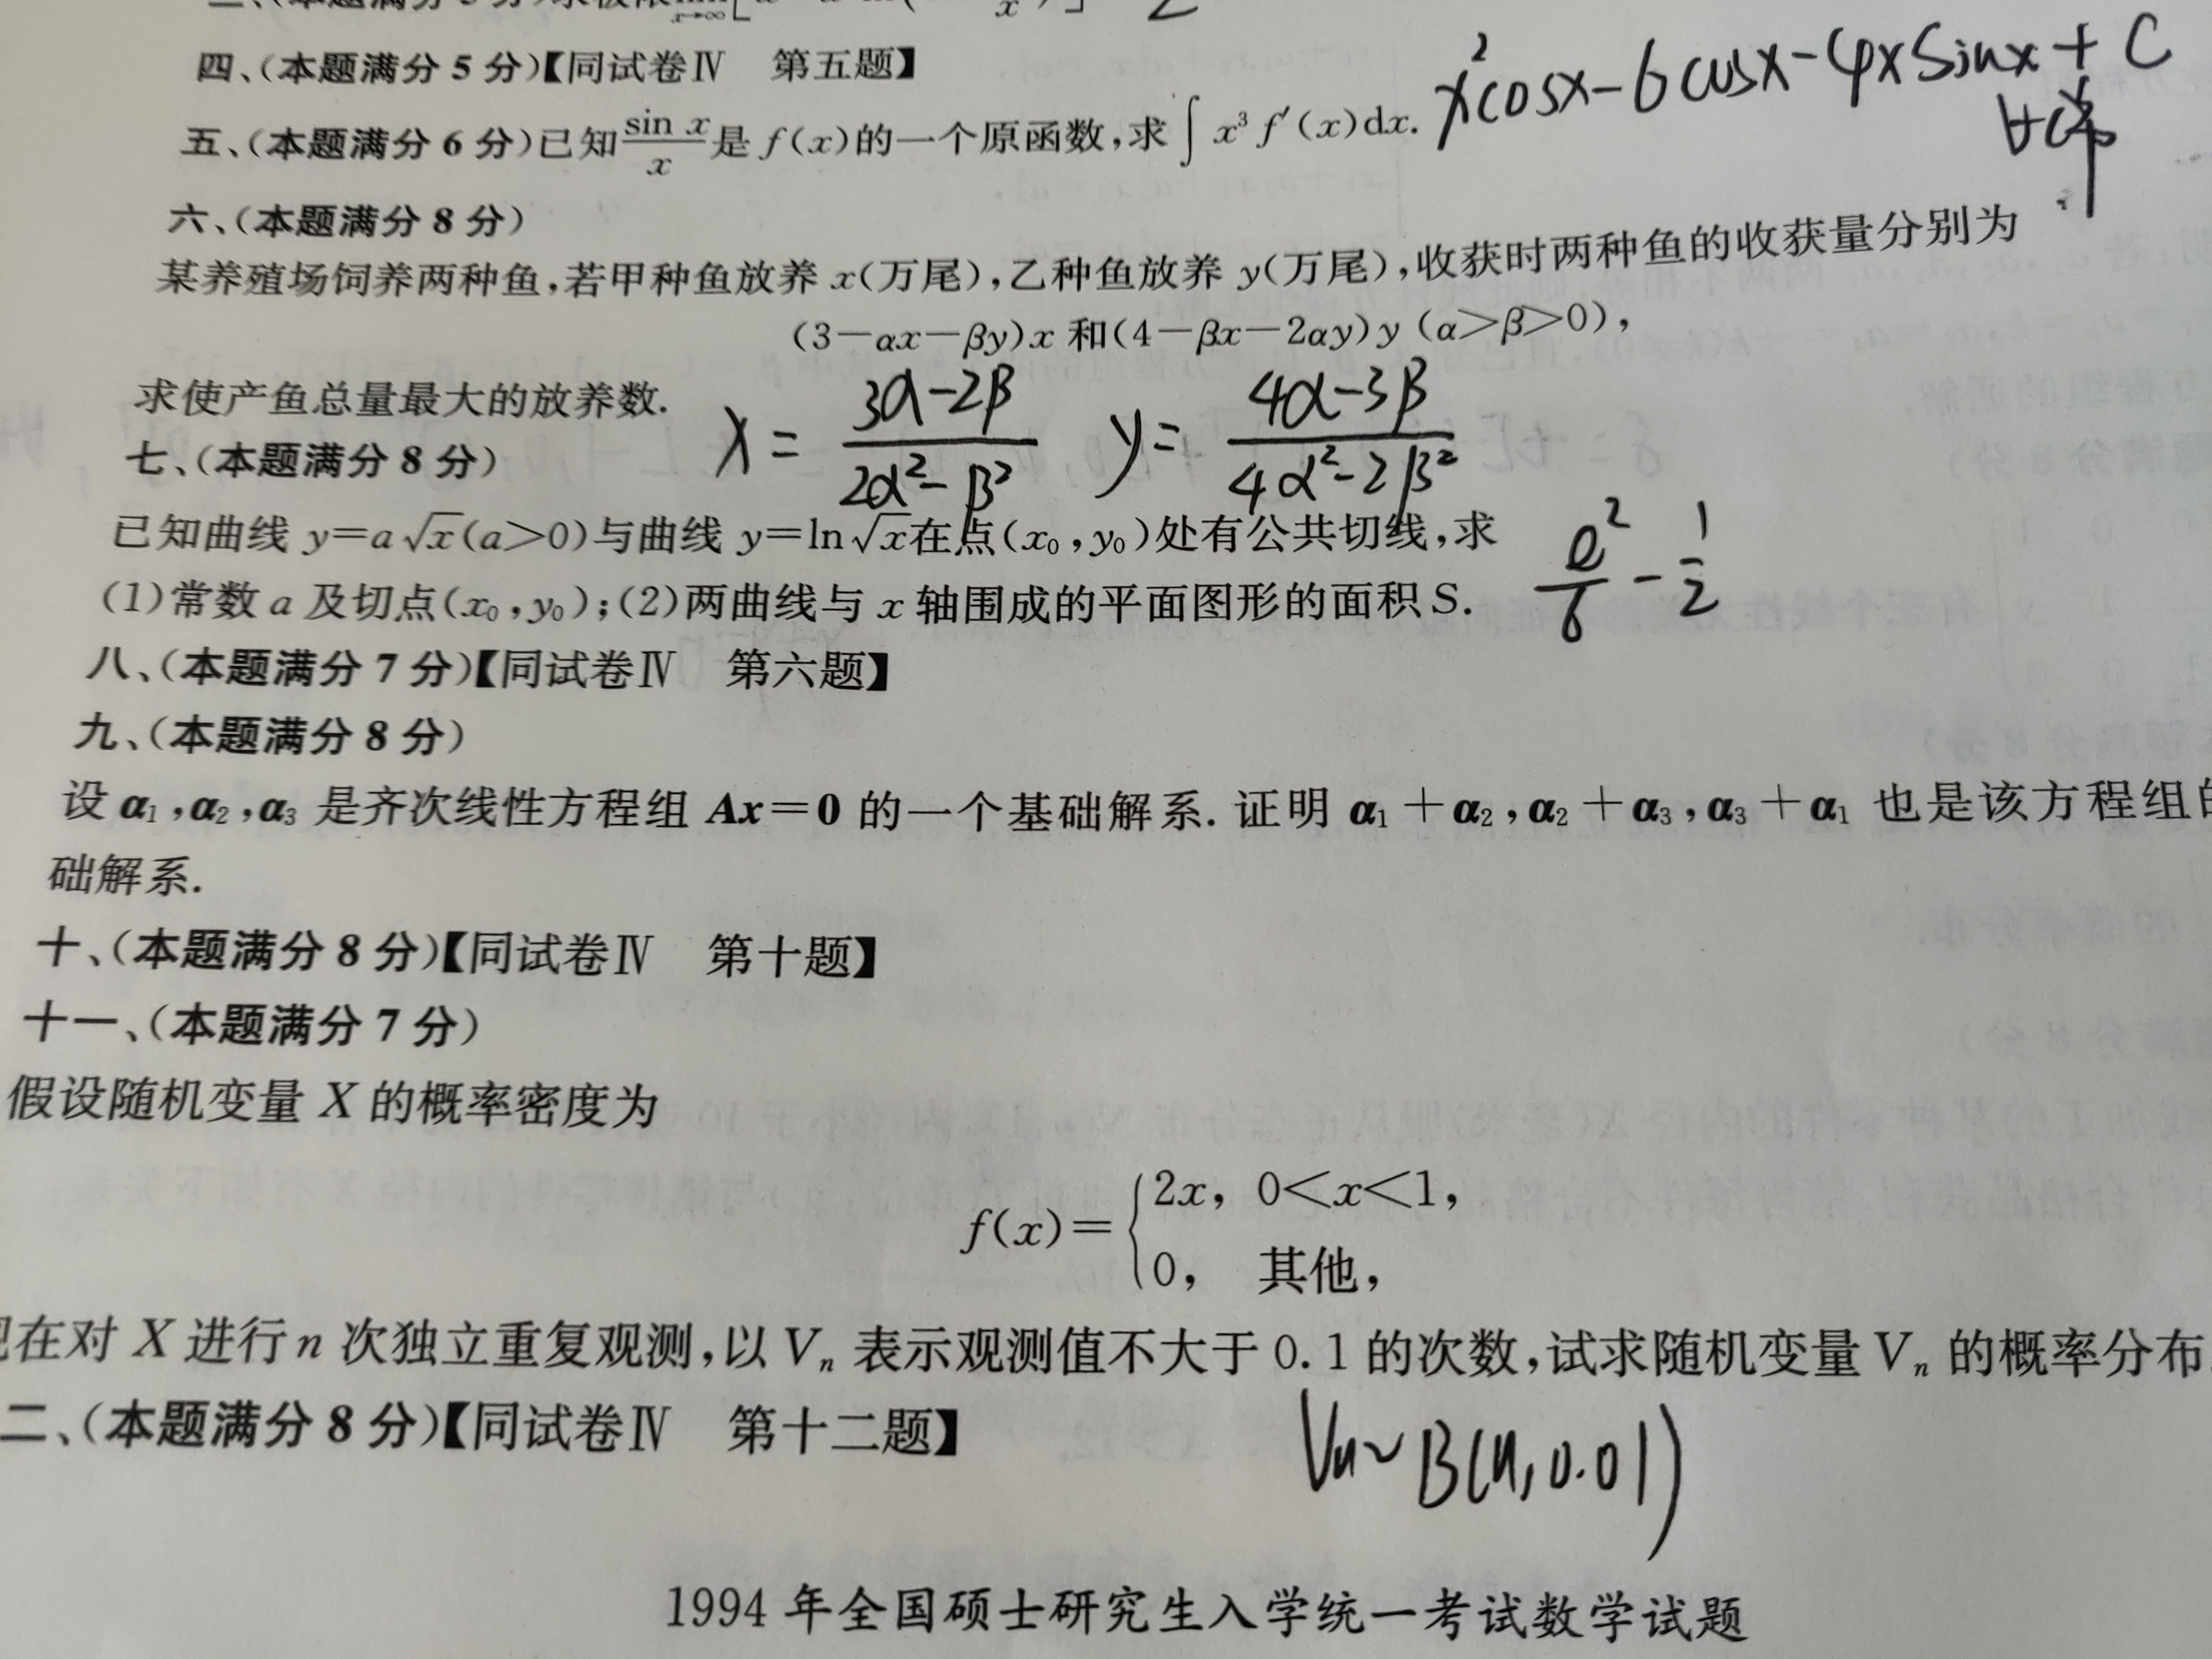 四、(本题满分5分)【同试卷Ⅳ 第五题】
x²cosx-6cosx-4xsinx+C
五、(本题满分6分)已知sin x/x是f(x)的一个原函数,求∫x³f′(x)dx.
六、(本题满分8分)
某养殖场饲养两种鱼,若甲种鱼放养x(万尾),乙种鱼放养y(万尾),收获时两种鱼的收获量分别为
(3-αx-βy)x和(4-βx-2αy)y (α>β>0),
求使产鱼总量最大的放养数.
x=(3α-2β)/(2α²-β²) y=(4α-3β)/(4α²-2β²)
七、(本题满分8分)
已知曲线y=a√x(a>0)与曲线y=ln√x在点(x₀,y₀)处有公共切线,求
(1)常数a及切点(x₀,y₀);(2)两曲线与x轴围成的平面图形的面积S.
e²/6-1/2
八、(本题满分7分)【同试卷Ⅳ 第六题】
九、(本题满分8分)
设α₁,α₂,α₃是齐次线性方程组Ax=0的一个基础解系.证明α₁+α₂,α₂+α₃,α₃+α₁也是该方程组的
础解系.
十、(本题满分8分)【同试卷Ⅳ 第十题】
十一、(本题满分7分)
假设随机变量X的概率密度为
f(x)={2x, 0<x<1,
0, 其他,
现在对X进行n次独立重复观测,以Vₙ表示观测值不大于0.1的次数,试求随机变量Vₙ的概率分布.
二、(本题满分8分)【同试卷Ⅳ 第十二题】
Vn~B(n,0.01)
1994年全国硕士研究生入学统一考试数学试题